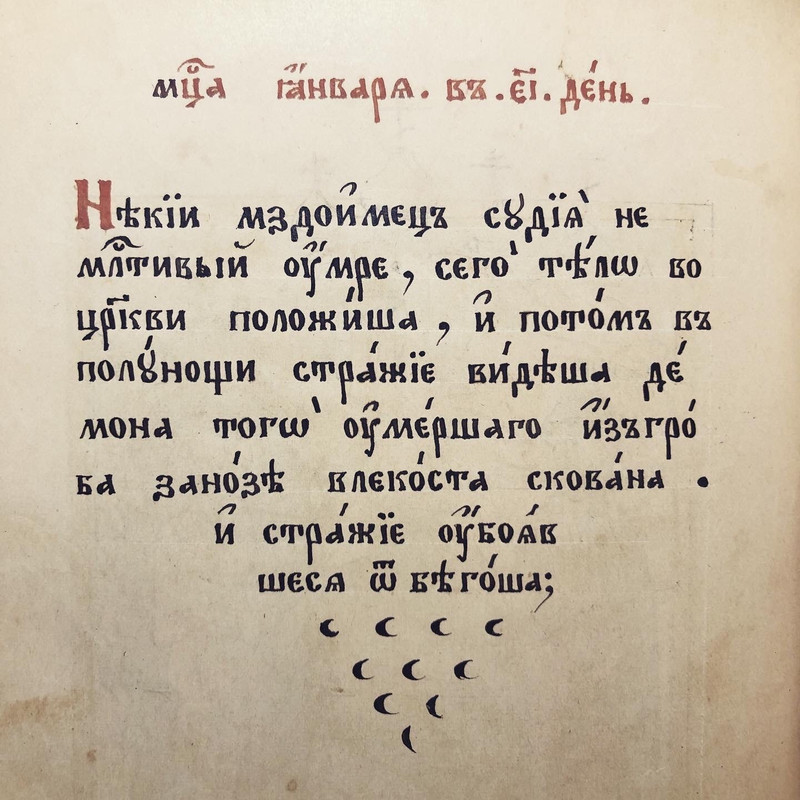 мц҃а іа҆нваря. въ. е҃і. де́нь.
Нѣкїи мздои҆мєцъ сꙋдїѧ̀ не
млⷭ҇тивый оу҆́мре, сего̀ тѣ́лѡ во
црⷦ҇кви положи́ша, и҆ пото́мъ въ
полꙋ́нощи стра́жїе ви́дѣша де́
мона тогѡ̀ оу҆ме́ршаго и҆зъгро́
ба зано́зѣ влєко́ста скова́на.
и҆ стра́жїе оу҆боѧ́в
шесѧ ѿ бѣго́ша;